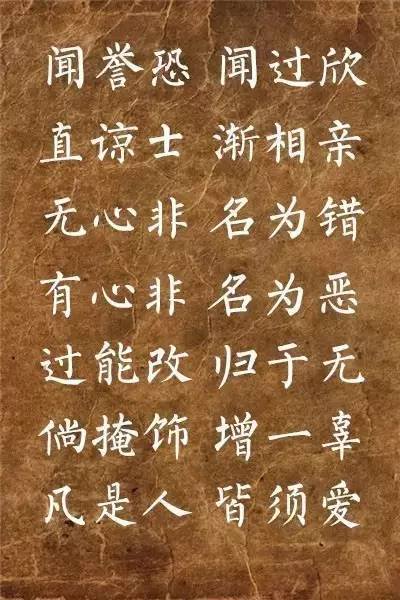 闻誉恐 闻过欣
直谅士 渐相亲
无心非 名为错
有心非 名为恶
过能改 归于无
倘掩饰 增一辜
凡是人 皆须爱